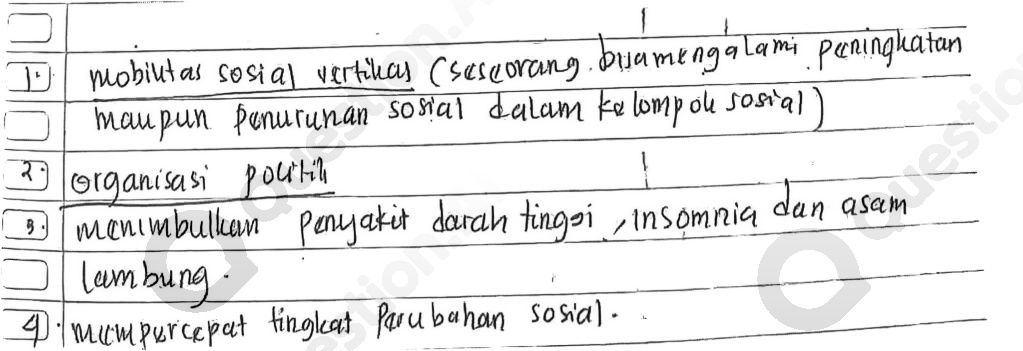 1. mobilitas sosial vertikal (seseorang bisa mengalami peningkatan
maupun penurunan sosial dalam kelompok sosial)
2. organisasi politik
3. menimbulkan penyakit darah tinggi, insomnia dan asam
lambung.
4. mempercepat tingkat Perubahan sosial.